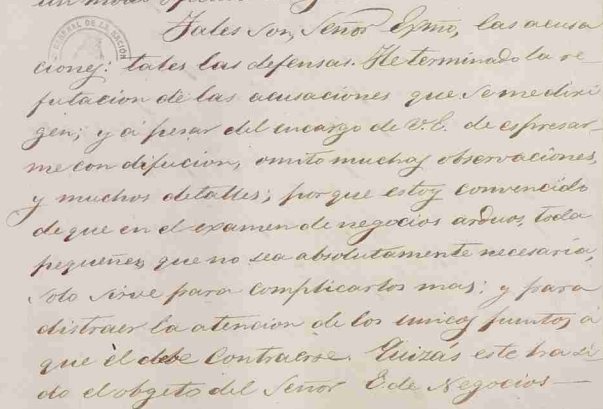 un modo
Tales son, Señor Exmo, las acusa
ciones: tales las defensas. He terminado la re
futacion de las acusaciones que se me diri
gen; y á pesar del encargo de V.E. de espresar-
me con difucion, omito muchas observaciones,
y muchos detalles; porque estoy convencido
de que en el examen de negocios arduos, toda
pequeñez que no sea absolutamente necesaria,
solo sirve para complicarlos mas; y para
distraer la atencion de los unicos puntos á
que él debe contraerse. Quizás este ha si-
do el obgeto del Señor E. de Negocios—